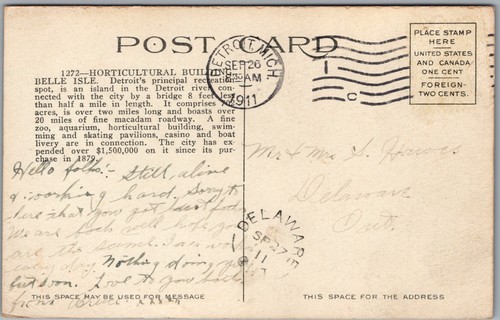 POST CARD
1272—HORTICULTURAL BUILDING
BELLE ISLE. Detroit's principal recreation
spot, is an island in the Detroit river con-
nected with the city by a bridge 8 feet less
than half a mile in length. It comprises
acres, is over two miles long and boasts over
20 miles of fine macadam roadway. A fine
zoo, aquarium, horticultural building, swim-
ming and skating pavilions, casino and boat
livery are in connection. The city has ex-
pended over $1,500,000 on it since its pur-
chase in 1879.
DETROIT, MICH
SEP 26
AM
1911
PLACE STAMP
HERE
UNITED STATES
AND CANADA
ONE CENT
FOREIGN-
TWO CENTS.
Hello folks:- Still alive
& working hard. Sorry to
hear that you got
We are both well hope you
are the same. I am
every day Nothing doing
but soon. Love to you both
from
Mr & Mrs S. Hawes
Delaware
Ont.
DELAWARE
SP 27
11
THIS SPACE MAY BE USED FOR MESSAGE
THIS SPACE FOR THE ADDRESS